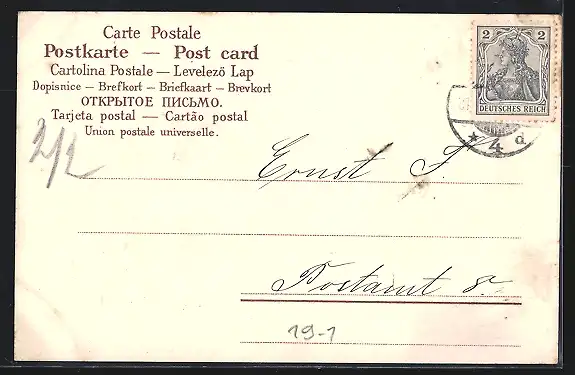 Carte Postale
Postkarte — Post card
Cartolina Postale — Levelező Lap
Dopisnice — Brefkort — Briefkaart — Brevkort
ОТКРЫТОЕ ПИСЬМО.
Tarjeta postal — Cartão postal
Union postale universelle.
2 2
DEUTSCHES REICH
* 4 d
2/2
Ernst F.
Postamt 8.
19-1